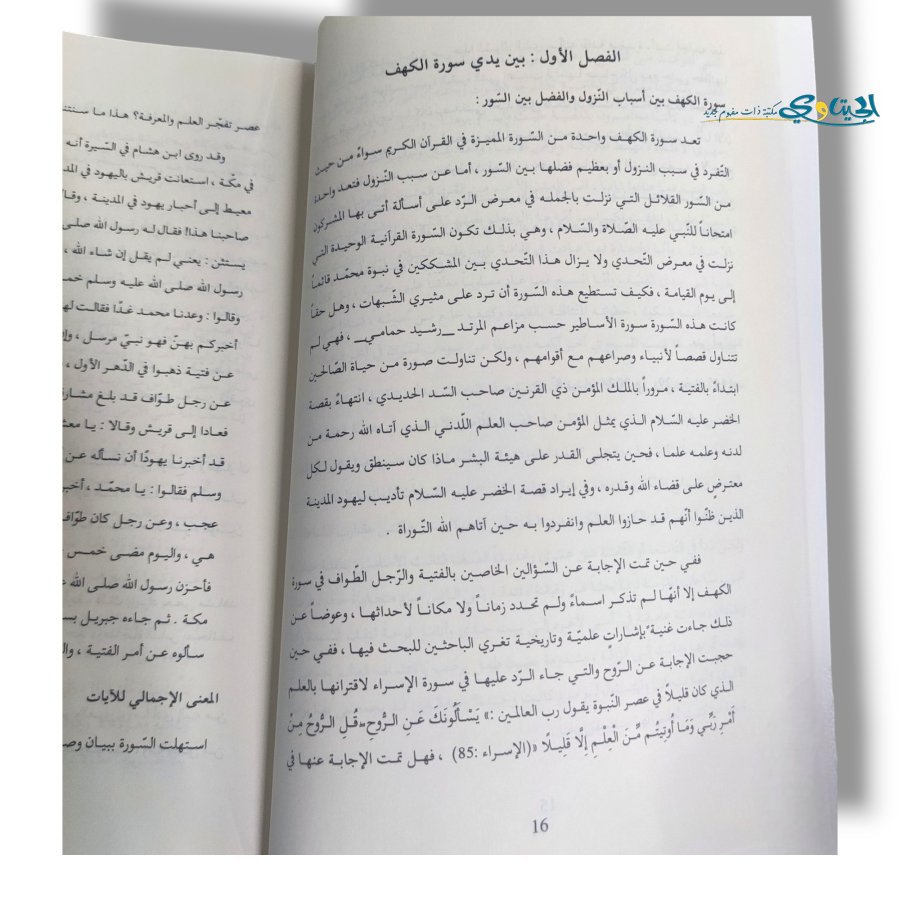 الفصل الأول : بين يدي سورة الكهف
سورة الكهف بين أسباب النّزول والفضل بين السّور :
تعد سورة الكهف واحدة من السّورة المميزة في القرآن الكريم سواءً من حيث
التّفرد في سبب النزول أو بعظيم فضلها بين السّور ، أما عن سبب النّزول فتعد واحدة
من السّور القلائل التي نزلت بالجمله في معرض الرّد على أسألة أتى بها المشركون
امتحاناً للنّبي عليه الصّلاة والسّلام ، وهي بذلك تكون السّورة القرآنية الوحيدة التي
نزلت في معرض التّحدي ولا يزال هذا التّحدي بين المشككين في نبوة محمّد قائماً
إلى يوم القيامة ، فكيف تستطيع هذه السّورة أن ترد على مثيري الشّبهات ، وهل حقاً
كانت هذه السّورة سورة الأساطير حسب مزاعم المرتد_رشيد حمامي_ ، فهي لم
تتناول قصصاً لأنبياء وصراعهم مع أقوامهم ، ولكن تناولت صورة من حياة الصّالحين
ابتداءً بالفتية ، مروراً بالملك المؤمن ذي القرنين صاحب السّد الحديدي ، انتهاءً بقصة
الخضر عليه السّلام الذي يمثل المؤمن صاحب العلم اللّدني الذي آتاه الله رحمة من
لدنه وعلمه علما ، فحين يتجلى القدر على هيئة البشر ماذا كان سينطق ويقول لكل
معترضٍ على قضاء الله وقدره ، وفي إيراد قصة الخضر عليه السّلام تأديب ليهود المدينة
الذين ظنّوا أنّهم قد حازوا العلم وانفردوا به حين آتاهم الله التّوراة .
ففي حين تمت الإجابة عن السّؤالين الخاصين بالفتية والرّجل الطّواف في سورة
الكهف إلا أنهّا لم تذكر اسماءً ولم تحدد زماناً ولا مكاناً لأحداثها ، وعوضاً عن
ذلك جاءت غنية بإشاراتٍ علميّة وتاريخية تغري الباحثين للبحث فيها ، ففي حين
حجبت الإجابة عن الرّوح والتي جاء الرّد عليها في سورة الإسراء لاقترانها بالعلم
الذي كان قليلاً في عصر النّبوة يقول رب العالمين :» يَسْأَلُونَكَ عَنِ الرُّوحِ قُلِ الرُّوحُ مِنْ
أَمْرِ رَبِّي وَمَا أُوتِيتُم مِّنَ الْعِلْمِ إِلَّا قَلِيلًا «(الإسراء :85) ، فهل تمت الإجابة عنها في
16
عصر تفجّر العلم والمعرفة؟ هذا ما سنتن
وقد روى ابن هشام في السّيرة أنه
في مكّة ، استعانت قريش باليهود في المد
معيط إلى أحبار يهود في المدينة ، وقا
صاحبنا هذا! فقال له رسول الله صلى
يستثن : يعني لم يقل إن شاء الله ،
رسول الله صلى الله عليه وسلم خم
وقالوا : وعدنا محمد غدًا فقالت له
أخبركم بهنّ فهو نبيّ مرسل ، وإ
عن فتية ذهبوا في الدّهر الأول ،
عن رجل طوّاف قد بلغ مشار
فعادا إلى قريش وقالا : يا معش
قد أخبرنا يهودًا أن نسأله عن
وسلم فقالوا : يا محمّد ، أخبر
عجب ، وعن رجل كان طوّاف
هي ، واليوم مضى خمس
فأحزن رسول الله صلى الله ع
مكة . ثم جاءه جبريل بس
سألوه عن أمر الفتية ، وال
المعنى الإجمالي للآيات
استهلت السّورة ببيان وص
الجيتاوي مكتبة ذات مفهوم جديد